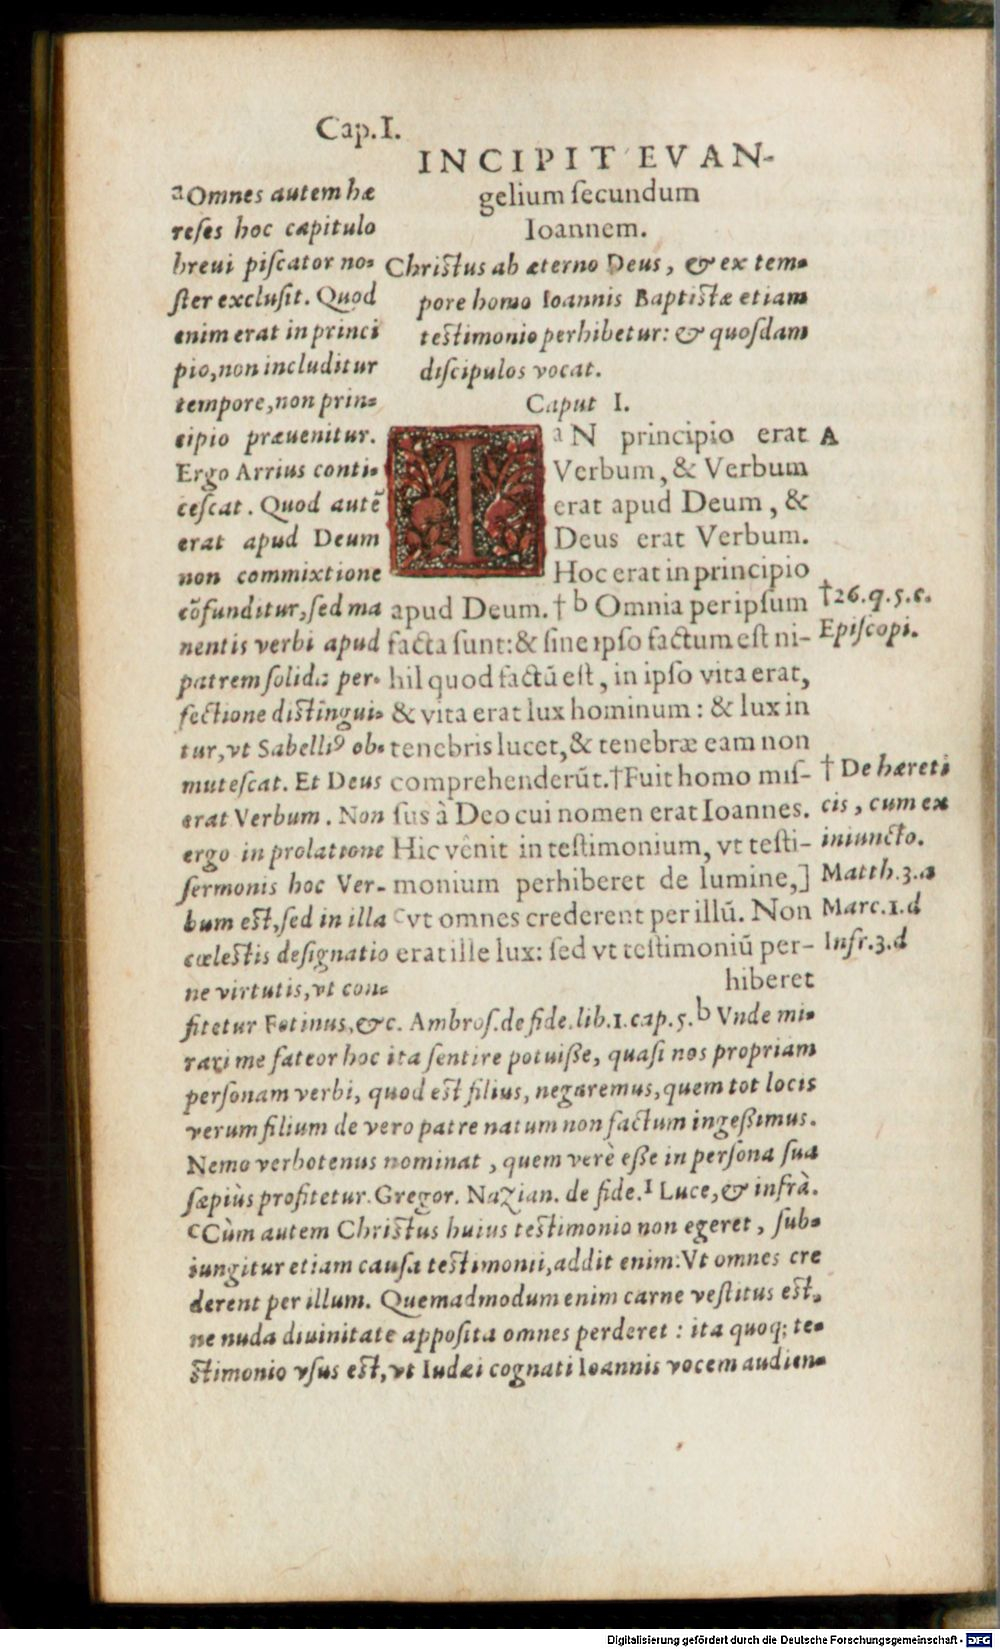 Cap.I.
INCIPIT EVAN-
gelium secundum
Ioannem.
Christus ab æterno Deus, & ex tem-
pore homo Ioannis Baptistæ etiam
testimonio perhibetur: & quosdam
discipulos vocat.
Caput I.
a IN principio erat A
Verbum, & Verbum
erat apud Deum, &
Deus erat Verbum.
Hoc erat in principio
apud Deum. † b Omnia per ipsum
facta sunt: & sine ipso factum est ni-
hil quod factū est, in ipso vita erat,
& vita erat lux hominum: & lux in
tenebris lucet, & tenebræ eam non
comprehenderūt. † Fuit homo mis-
sus à Deo cui nomen erat Ioannes.
Hic vênit in testimonium, vt testi-
monium perhiberet de lumine,]
c vt omnes crederent per illū. Non
erat ille lux: sed vt testimoniū per-
hiberet
†26.q.5.c.
Episcopi.
† De hæreti
cis, cum ex
iniuncto.
Matth.3.a
Marc.1.d
Infr.3.d
a Omnes autem hæ
reses hoc capitulo
breui piscator no-
ster exclusit. Quod
enim erat in princi
pio, non includitur
tempore, non prin-
cipio præuenitur.
Ergo Arrius conti-
cescat. Quod autē
erat apud Deum
non commixtione
cōfunditur, sed ma
nentis verbi apud
patrem solida per-
fectione distingui-
tur, vt Sabelliꝰ ob-
mutescat. Et Deus
erat Verbum. Non
ergo in prolatione
sermonis hoc Ver-
bum est, sed in illa
cœlestis designatio
ne virtutis, vt con-
fitetur Fotinus, &c. Ambros. de fide. lib.1.cap.5. b Vnde mi-
rari me fateor hoc ita sentire potuiße, quasi nos propriam
personam verbi, quod est filius, negaremus, quem tot locis
verum filium de vero patre natum non factum ingeßimus.
Nemo verbotenus nominat, quem verè eße in persona sua
sæpiùs profitetur. Gregor. Nazian. de fide. 1 Luce, & infrà.
c Cùm autem Christus huius testimonio non egeret, sub-
iungitur etiam causa testimonii, addit enim: Vt omnes cre
derent per illum. Quemadmodum enim carne vestitus est,
ne nuda diuinitate apposita omnes perderet: ita quoq; te-
stimonio vsus est, vt Iudæi cognati Ioannis vocem audien-
Digitalisierung gefördert durch die Deutsche Forschungsgemeinschaft - DFG